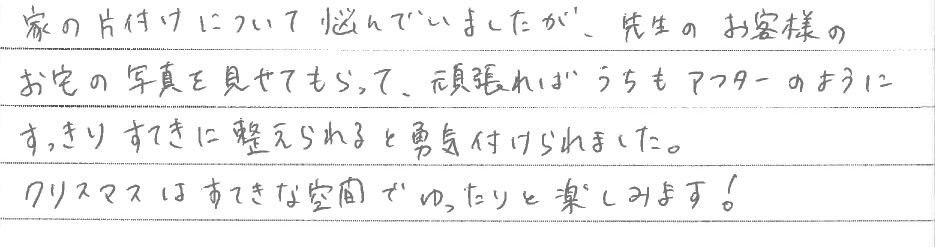 家の片付けについて悩んでいましたが、先生のお客様の
お宅の写真を見せてもらって、頑張ればうちもアフターのように
すっきりすてきに整えられると勇気付けられました。
クリスマスはすてきな空間でゆったりと楽しみます!